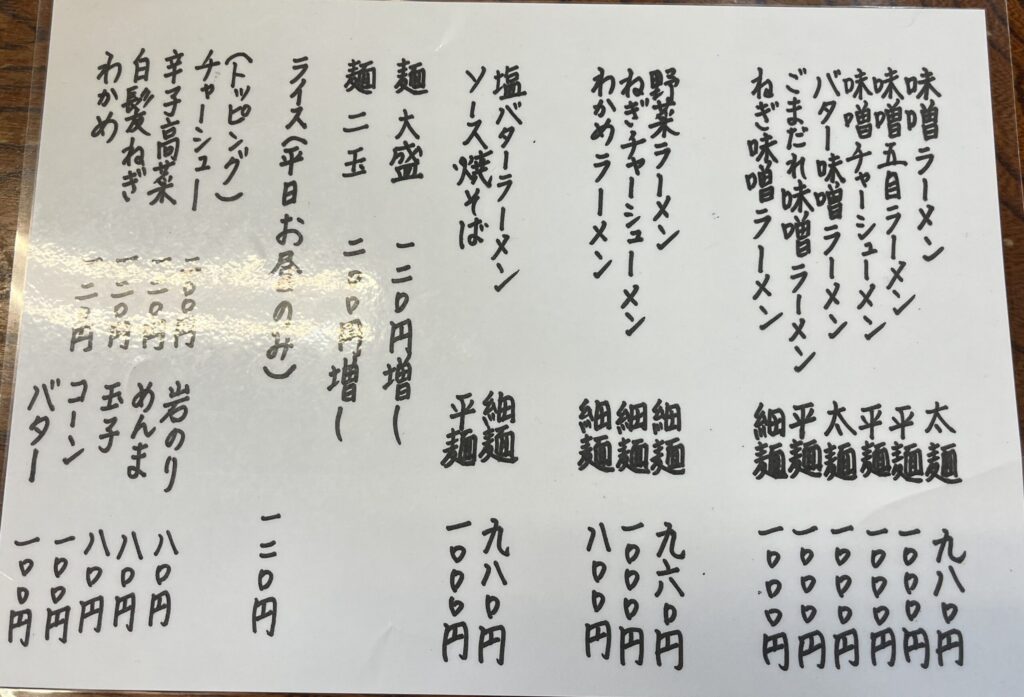 味噌ラーメン 太麺 九八〇円
味噌五目ラーメン 平麺 一〇〇〇円
味噌チャーシューメン 平麺 一〇〇〇円
バター味噌ラーメン 太麺 一〇〇〇円
ごまだれ味噌ラーメン 平麺 一〇〇〇円
ねぎ味噌ラーメン 細麺 一〇〇〇円
野菜ラーメン 細麺 九六〇円
ねぎチャーシューメン 細麺 一〇〇〇円
わかめラーメン 細麺 八〇〇円
塩バターラーメン 細麺 九八〇円
ソース焼そば 平麺 一〇〇〇円
麺大盛 一二〇円増し
麺二玉 二〇〇円増し
ライス(平日お昼のみ) 一二〇円
(トッピング)
チャーシュー
辛子高菜 一二〇円
白髪ねぎ 一二〇円
わかめ 一二〇円
岩のり 八〇円
めんま 八〇円
玉子 八〇円
コーン 一〇〇円
バター 一〇〇円